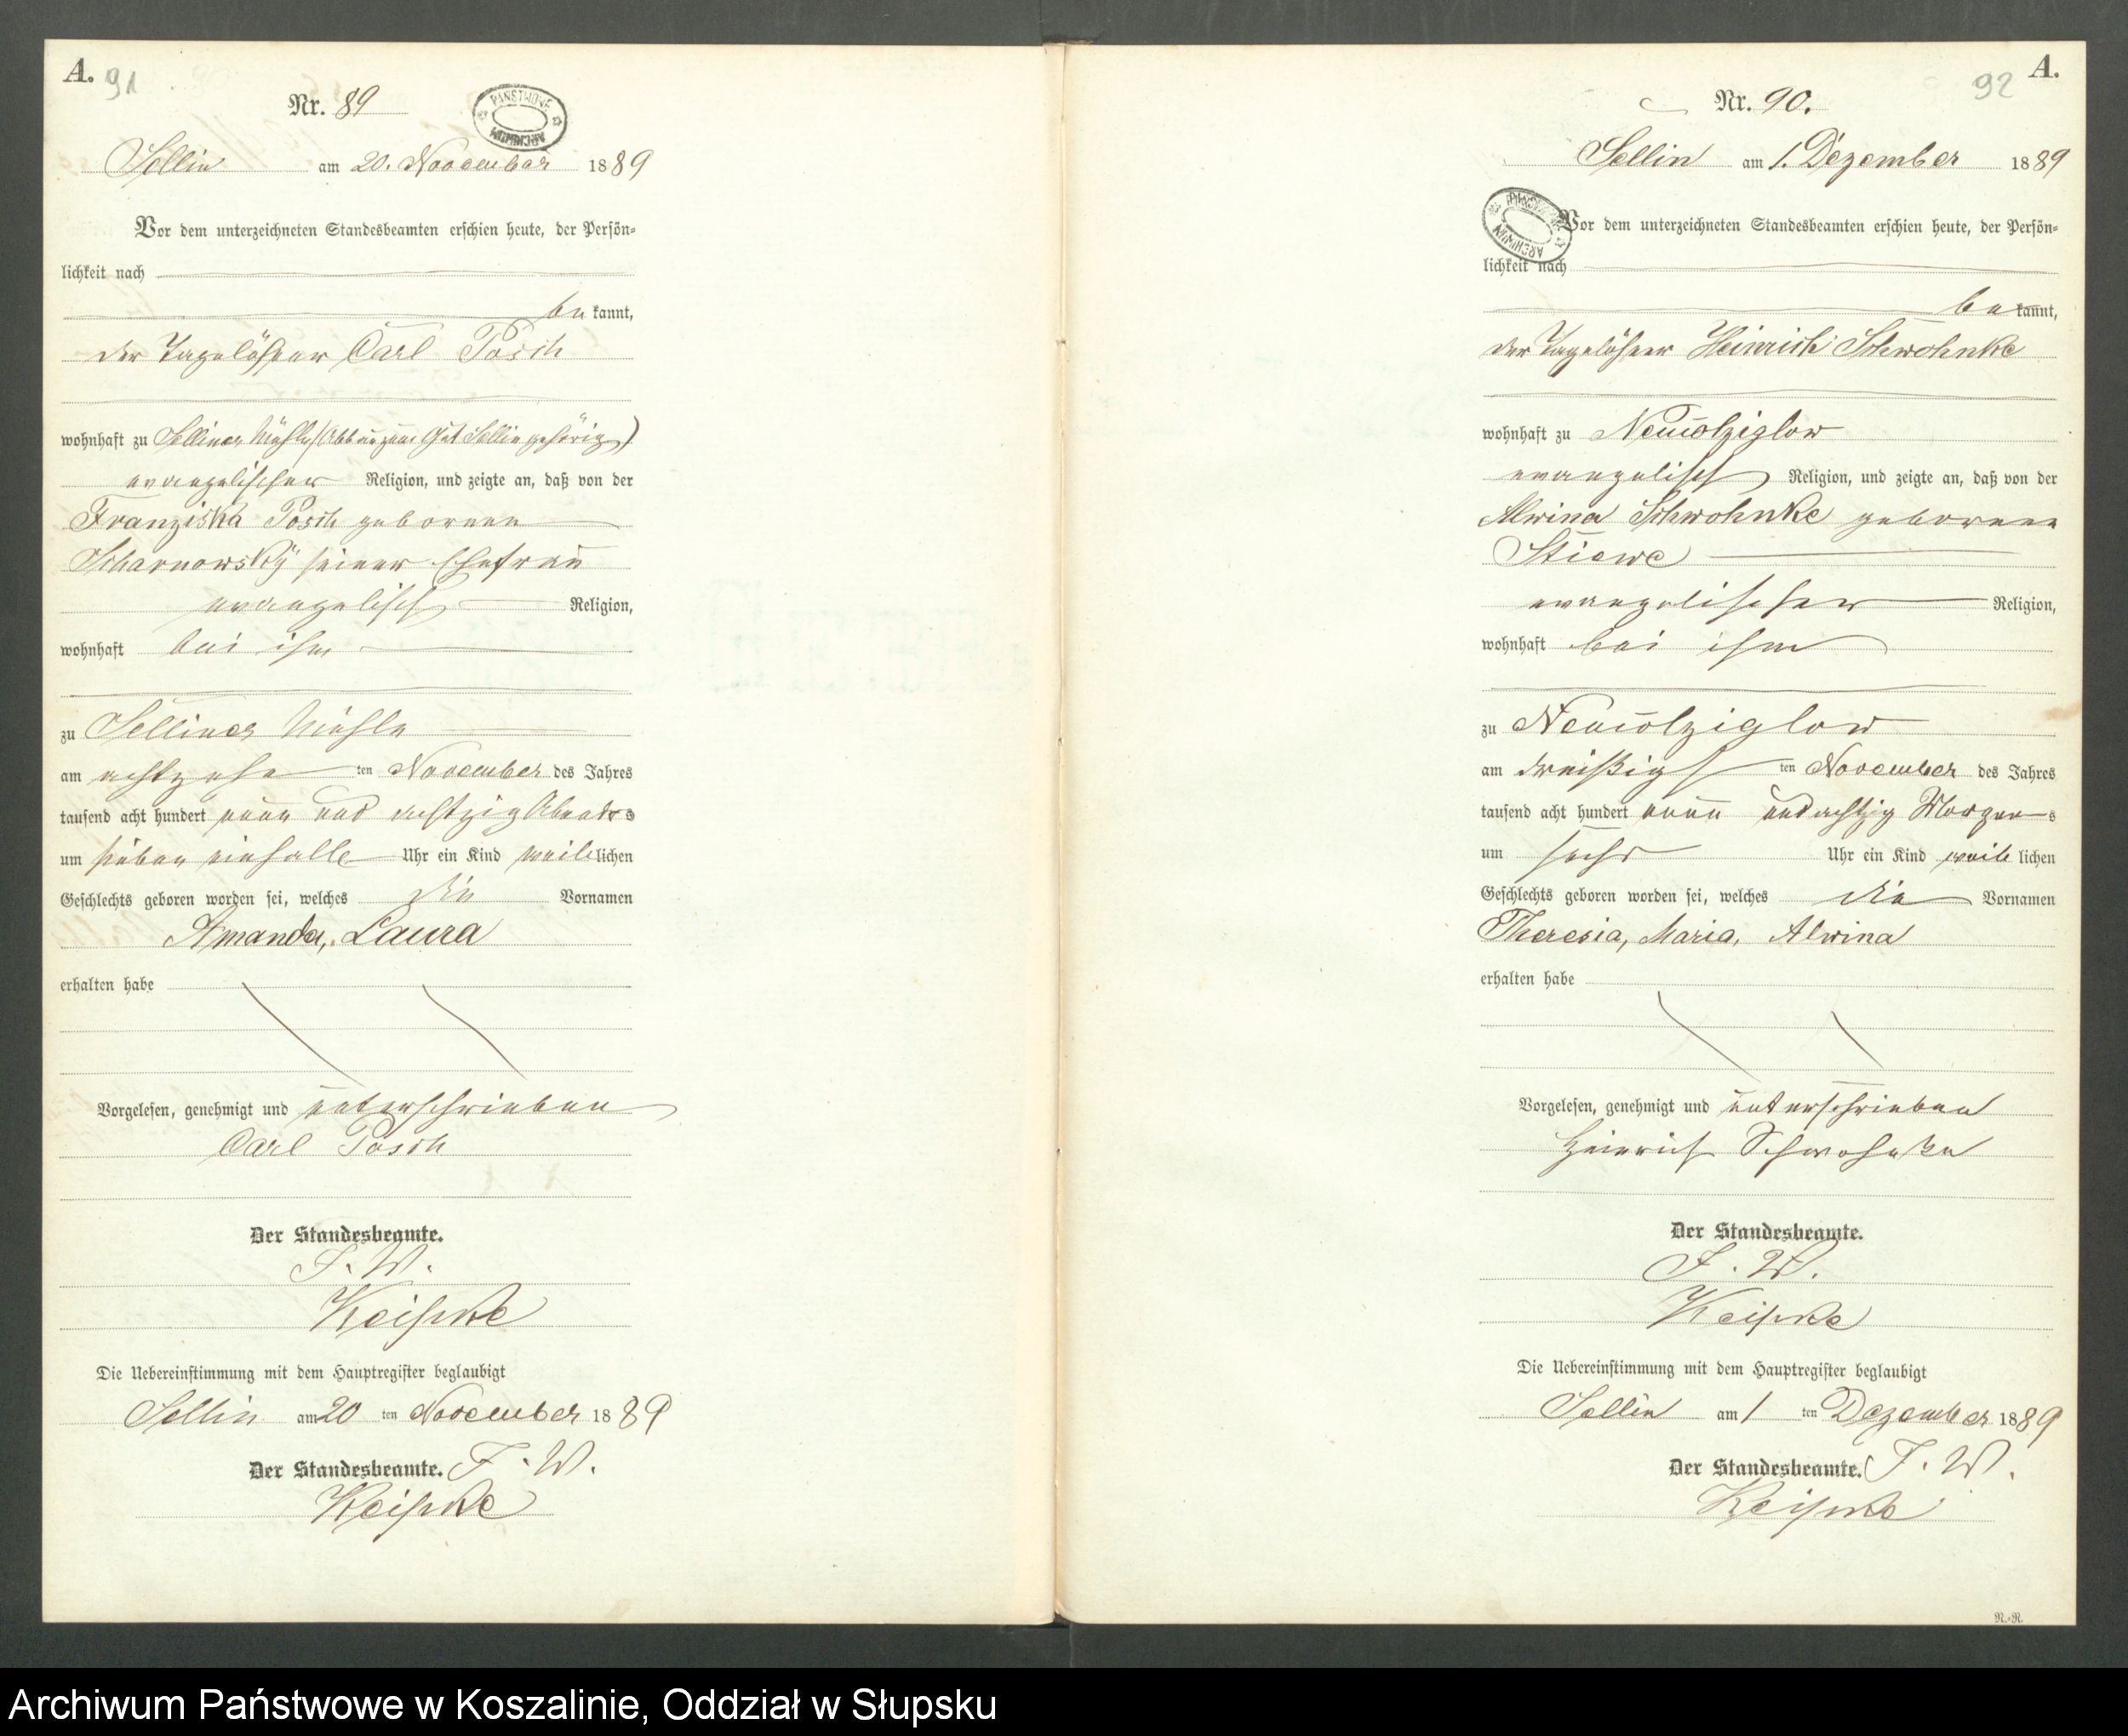 A. 91
Nr. 89
PAŃSTWOWE ARCHIWUM
Sellin am 20. November 1889
Vor dem unterzeichneten Standesbeamten erschien heute, der Persön-
lichkeit nach
be kannt,
der Tagelöhner Carl Posch
wohnhaft zuSelliner Mühle (Abbau zum Gut Sellin gehörig)
evangelischer Religion, und zeigte an, daß von der
Franziska Posch geborenen
Scharnowsky seiner Ehefrau
evangelisch Religion,
wohnhaft bei ihm
zu Selliner Mühle
am achtzehn ten November des Jahres
tausend acht hundert neun und achtzig Abends
um sieben einhalb Uhr ein Kind weiblichen
Geschlechts geboren worden sei, welches die Vornamen
Amanda, Laura
erhalten habe
Vorgelesen, genehmigt und unterschrieben
Carl Posch
Der Standesbeamte.
J. W.
Keipke
Die Uebereinstimmung mit dem Hauptregister beglaubigt
Sellin am 20 ten November 1889
Der Standesbeamte. J. W.
Keipke
92 A.
Nr. 90.
Sellin am 1. Dezember 1889
PAŃSTWOWE ARCHIWUM
Vor dem unterzeichneten Standesbeamten erschien heute, der Persön-
lichkeit nach
be kannt,
der Tagelöhner Heinrich Schwohnke
wohnhaft zu Neuwolziglow
evangelisch Religion, und zeigte an, daß von der
Alwina Schwohnke geborenen
Stiewe
evangelischer Religion,
wohnhaft bei ihm
zu Neuwolziglow
am dreißigs ten November des Jahres
tausend acht hundert neun und achtzig Morgens
um sechs Uhr ein Kind weib lichen
Geschlechts geboren worden sei, welches die Vornamen
Theresia, Maria, Alwina
erhalten habe
Vorgelesen, genehmigt und unterschrieben
Heinrich Schwohnke
Der Standesbeamte.
J. W.
Keipke
Die Uebereinstimmung mit dem Hauptregister beglaubigt
Sellin am 1 ten Dezember 1889
Der Standesbeamte. J. W.
Keipke
R.-R.
Archiwum Państwowe w Koszalinie, Oddział w Słupsku